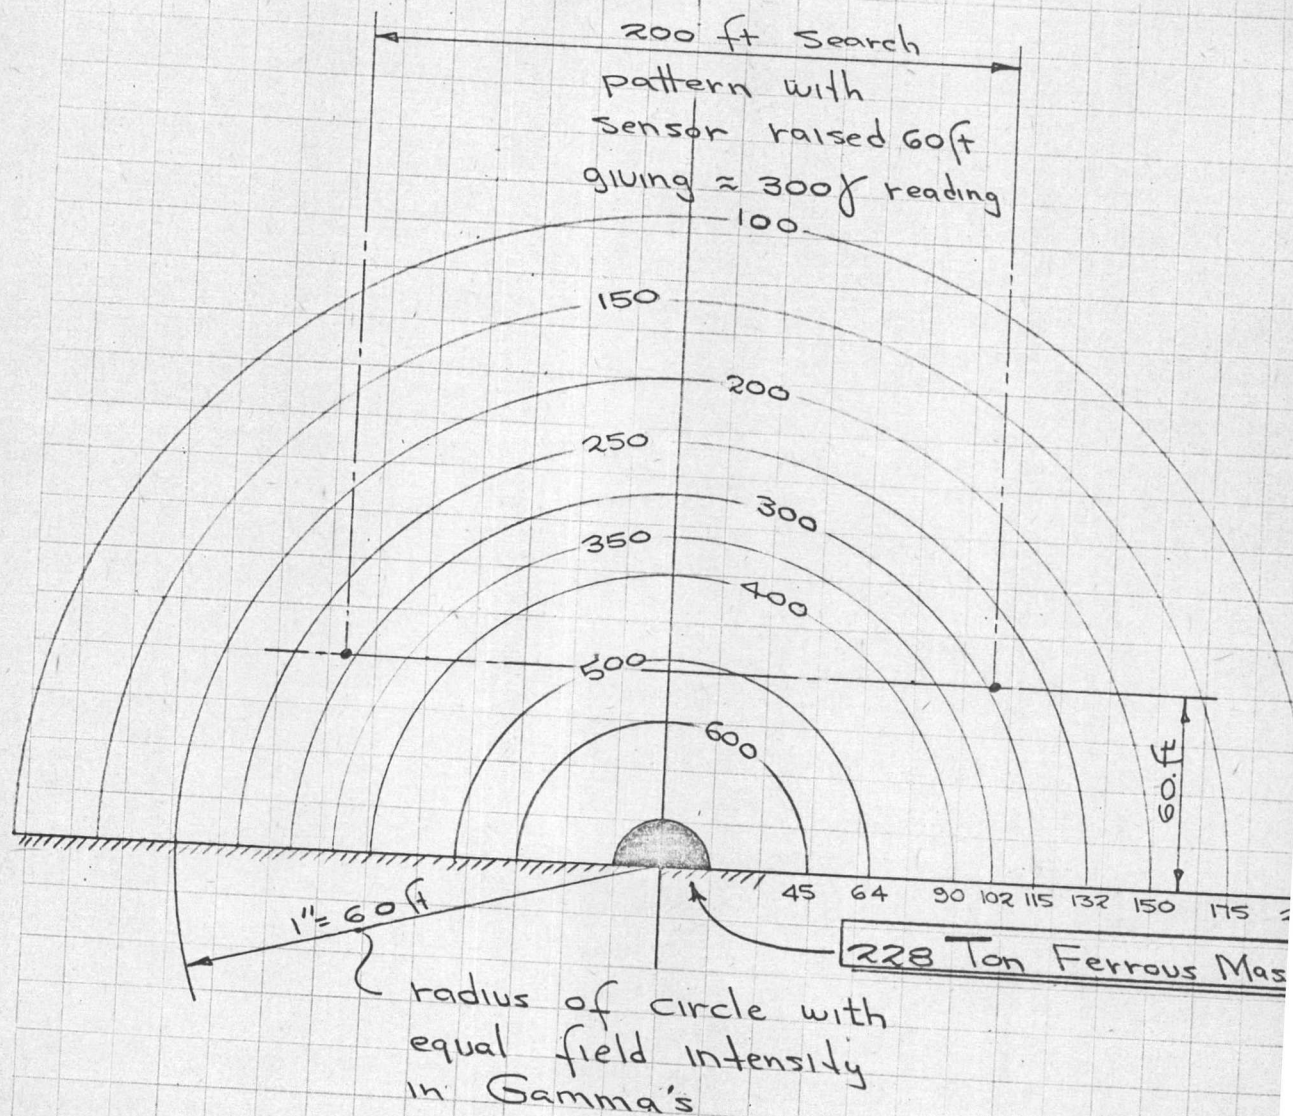 200 ft Search
pattern with
sensor raised 60ft
giving ≈ 300γ reading
100
150
200
250
300
350
400
500
600
60.ft
45 64 90 102 115 132 150 175
1"= 60ft
228 Ton Ferrous Mas
radius of circle with
equal field intensity
in Gamma's